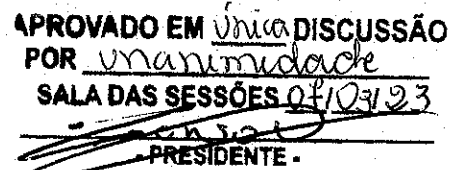 APROVADO EM Única DISCUSSÃO
POR unanimidade
SALA DAS SESSÕES 07/03/23
- PRESIDENTE -